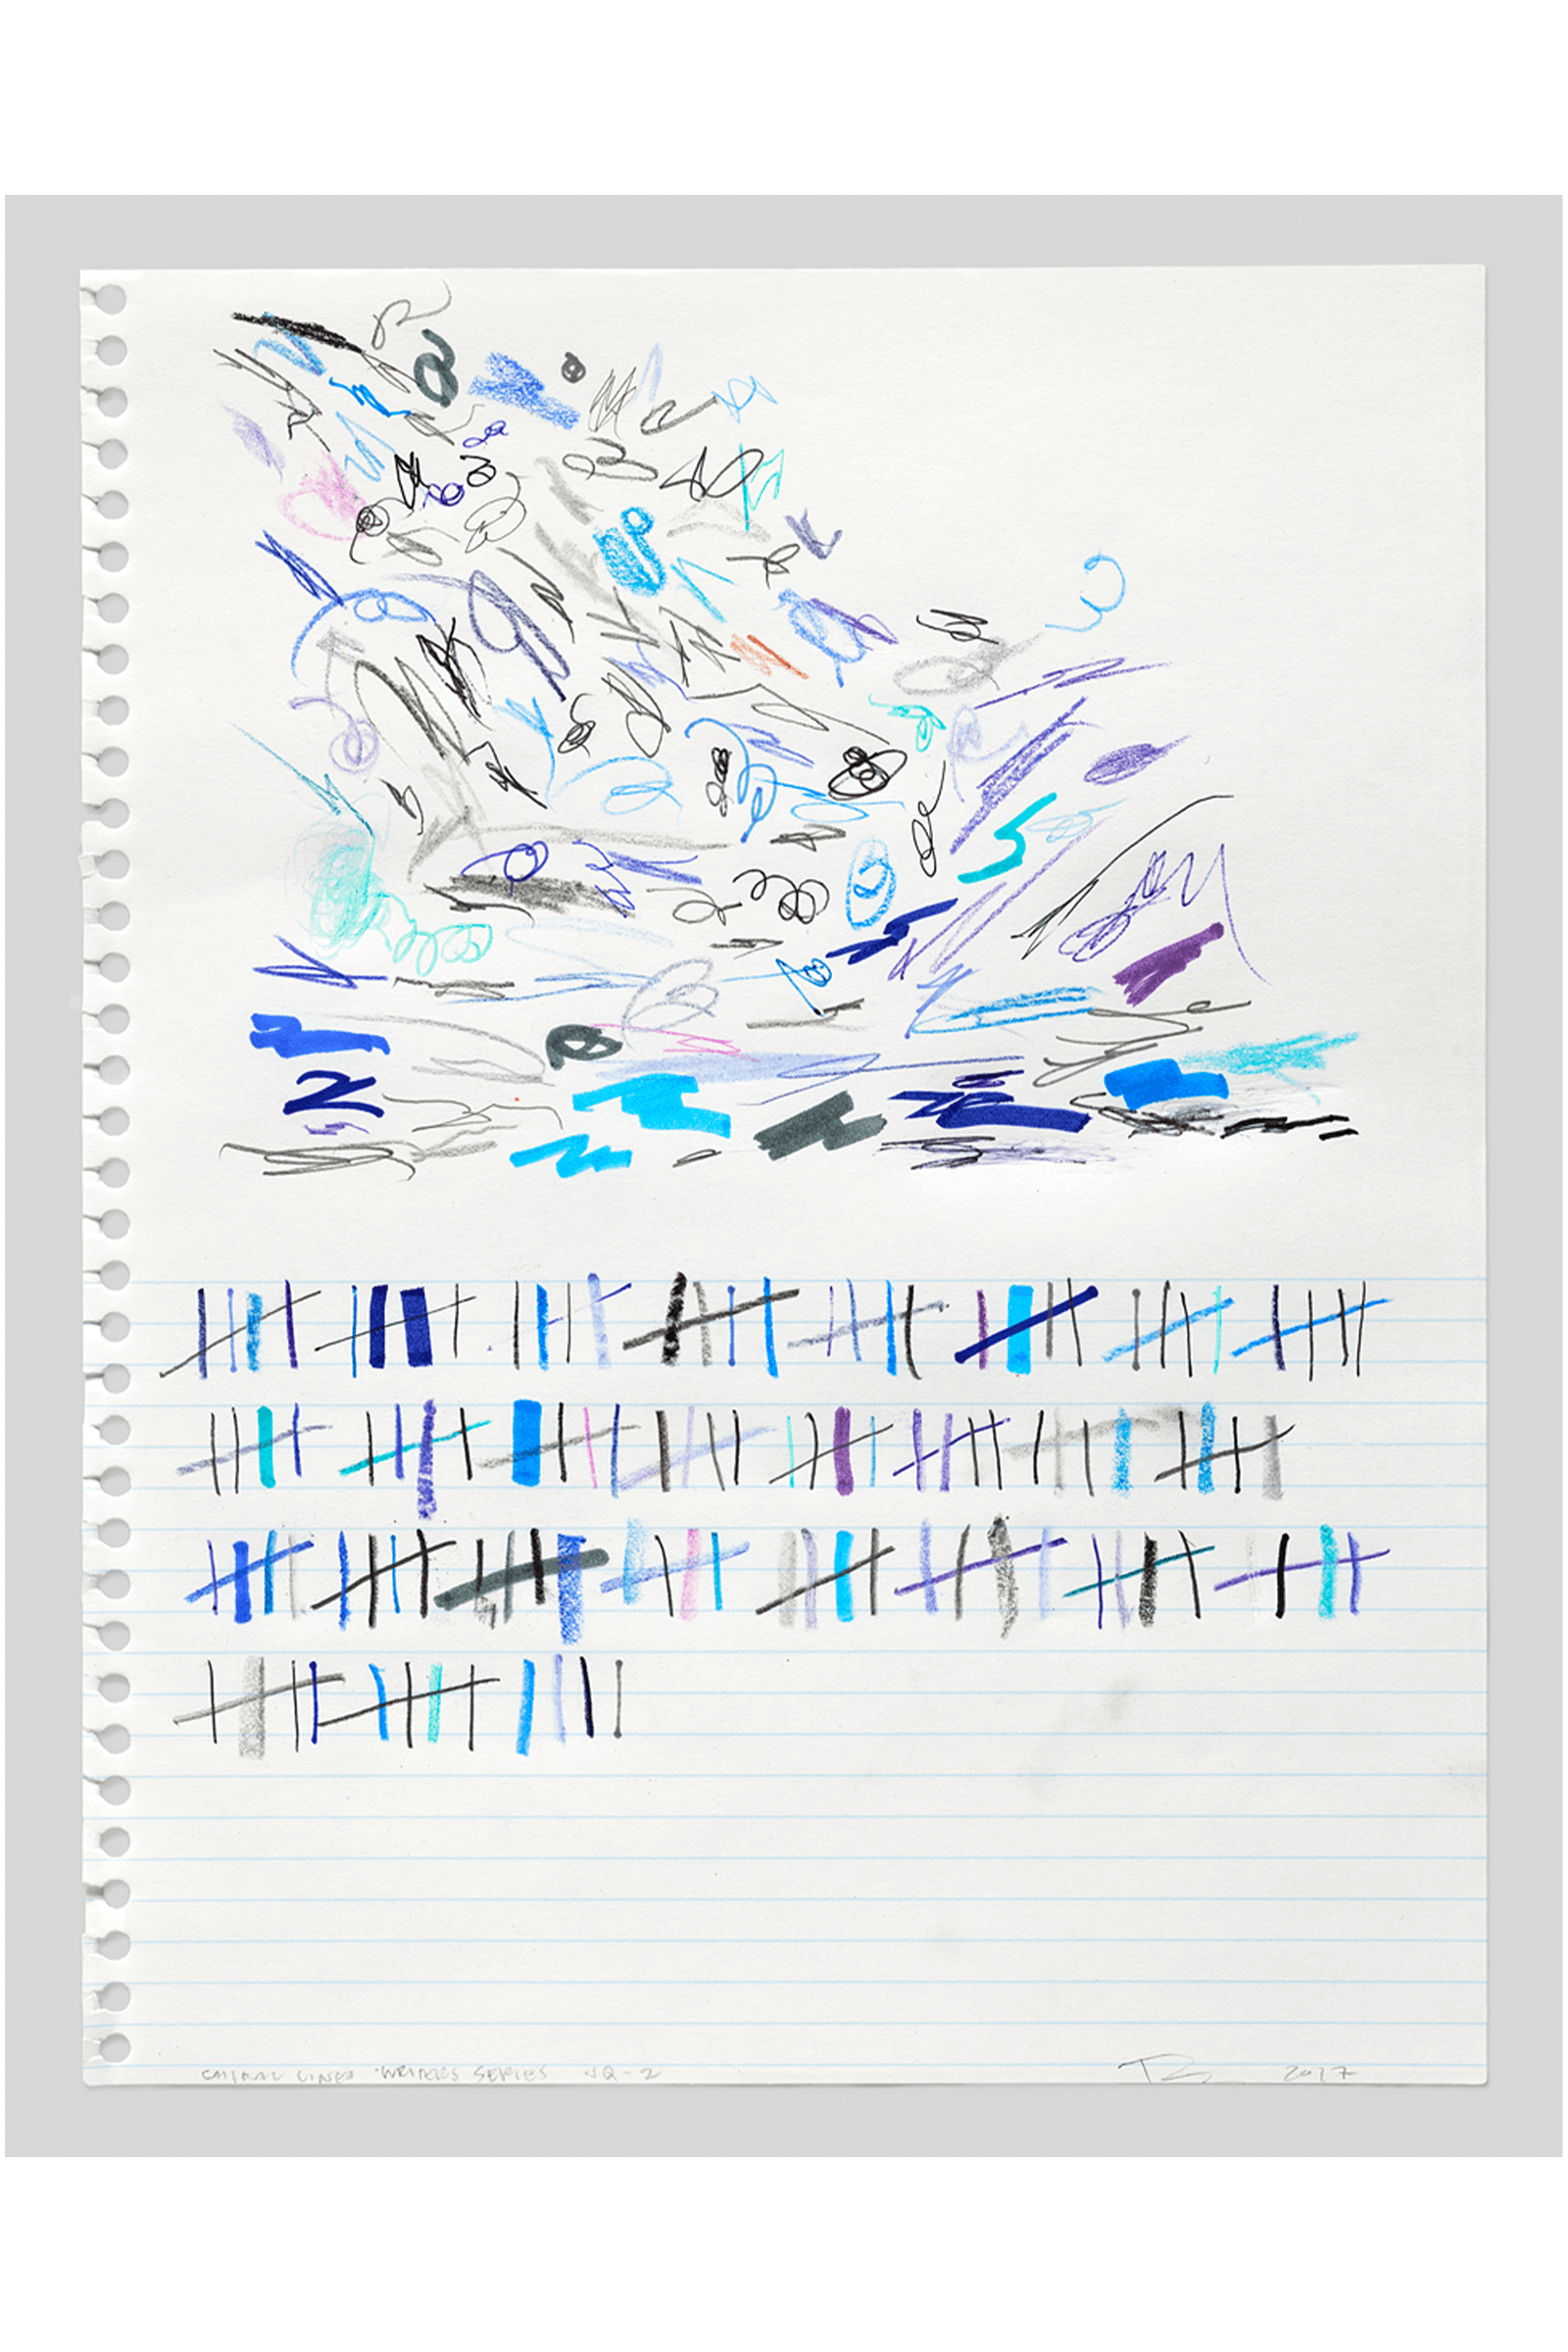 CHIRAL LINES WRITERS SERIES JQ-2
2017